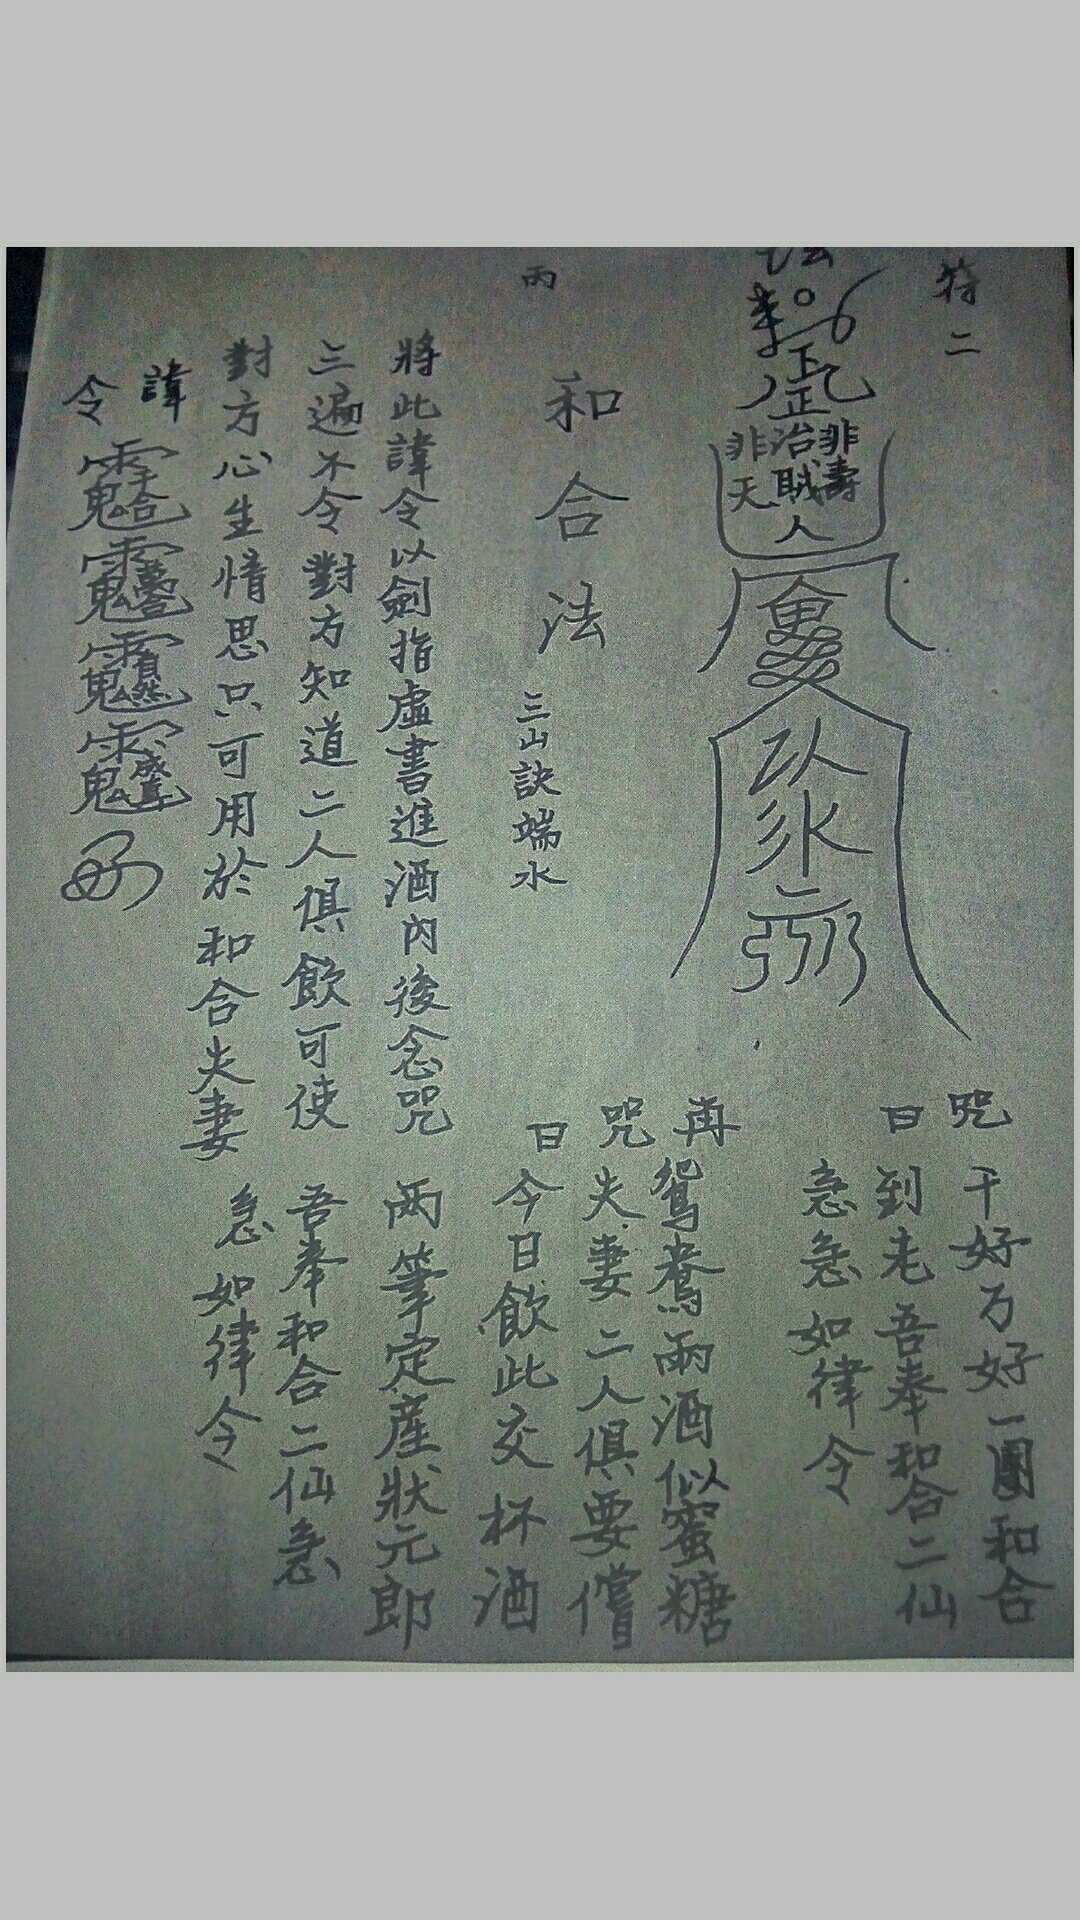 符二
非治非
天賊壽
人
咒曰
千好万好一團和合
到老吾奉和合二仙
急急如律令
丙
和合法
三山訣端水
再咒曰
鴛鴦兩酒似蜜糖
夫妻二人俱要嚐
今日飲此交杯酒
两筆定産狀元郎
吾奉和合二仙急
急如律令
將此諱令以劍指虛書進酒内後念咒
三遍不令對方知道二人俱飲可使
對方心生情思只可用於和合夫妻
諱令